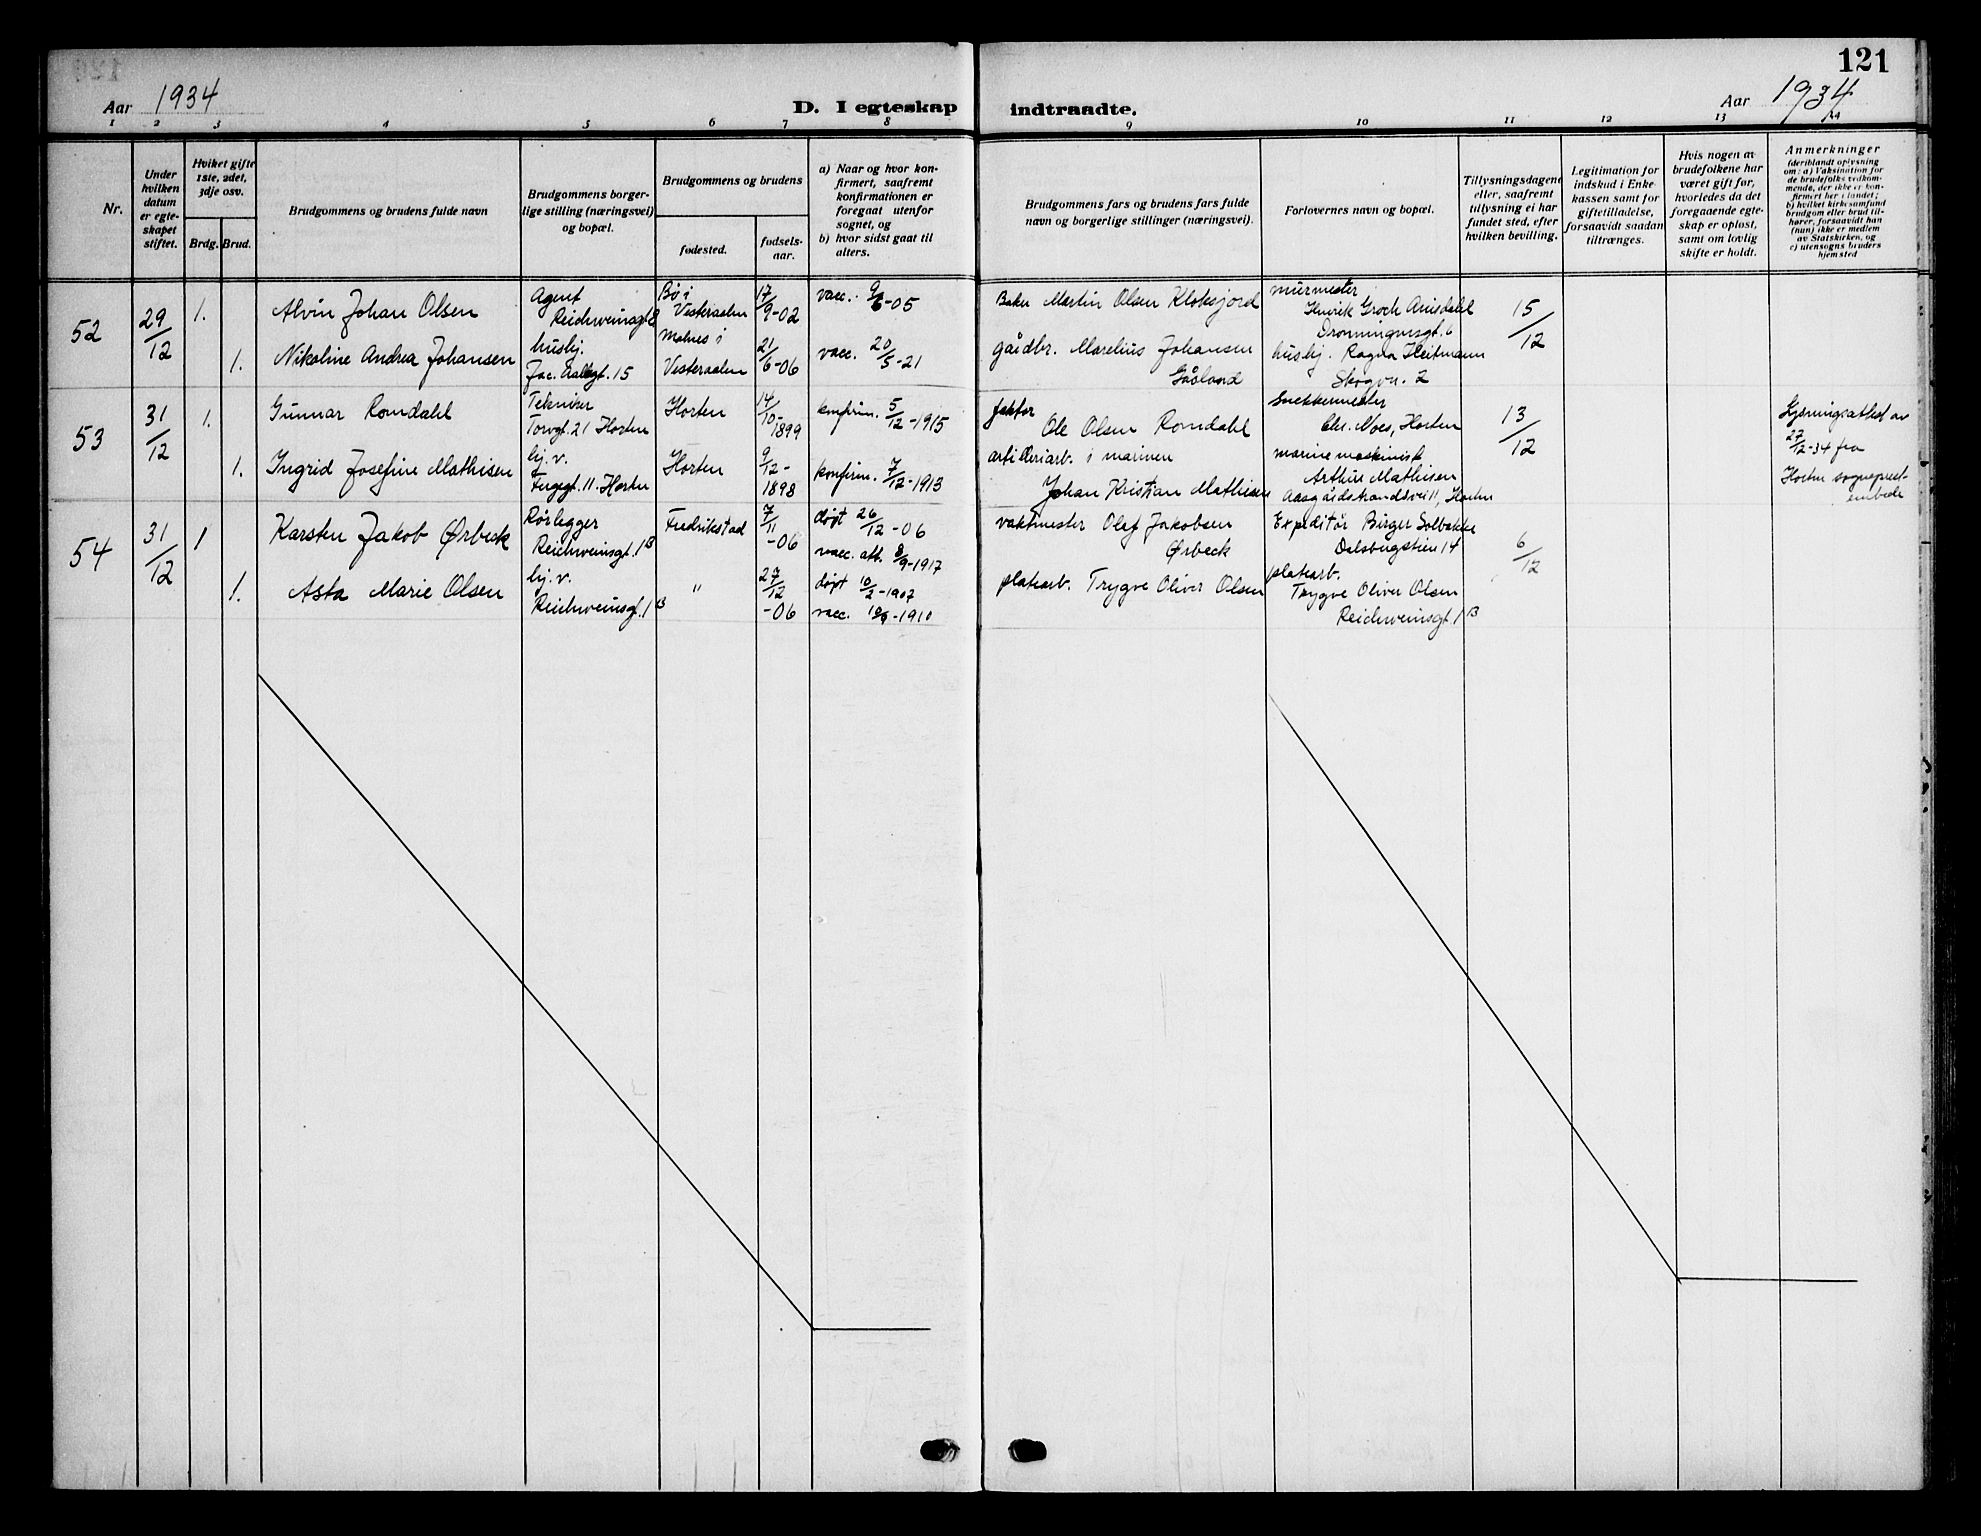 121
Aar 1934
D. I egteskap indtraadte.
Aar 1934
1 2 3 4 5 6 7 8 9 10 11 12 13 14
Nr.
Under
hvilken
datum
er egte-
skapet
stiftet.
Hvilket gifte
1ste, 2det,
3dje osv.
Brdg. Brud.
Brudgommens og brudens fulde navn
Brudgommens borger-
lige stilling (næringsvei)
og bopæl.
Brudgommens og brudens
fødested.
fødsels-
aar.
a) Naar og hvor kon-
firmert, saafremt
konfirmationen er
foregaat utenfor
sognet, og
b) hvor sidst gaat til
alters.
Brudgommens fars og brudens fars fulde
navn og borgerlige stillinger (næringsvei).
Forlovernes navn og bopæl.
Tillysningsdagene
eller, saafremt
tillysning ei har
fundet sted, efter
hvilken bevilling.
Legitimation for
indskud i Enke-
kassen samt for
giftetilladelse,
forsaavidt saadan
tiltrænges.
Hvis nogen av
brudefolkene har
været gift før,
hvorledes da det
foregaaende egte-
skap er opløst,
samt om lovlig
skifte er holdt.
Anmerkninger
(deriblandt oplysning
om: a) Vaksination for
de brudefolks vedkom-
mende, der ikke er kon-
firmert her i landet;
b) hvilket kirkesamfund
brudgom eller brud til-
hører, forsaavidt han
(hun) ikke er medlem
av Statskirken, og
c) utensogns bruders
hjemsted
52
29/12
1.
Alvin Johan Olsen
Agent
Reichweinsgt. 8
Bø i
Vesteraalen
17/9-02
vacc. 9/6-05
Baker Martin Olsen Kloksjord
murmester
Henrik Groth
Dronningensgt. 6
15/12
1.
Nikoline Andrea Johansen
husbj.
Jac. Aallsgt. 15
Malnes i
Vesteraalen
21/6-06
vacc. 20/5-21
gårdbr. Marelius Johansen
Gåsland
husbj. Ragna Heitmann
Skogvn. 2
53
31/12
1.
Gunnar Romdahl
Tekniker
Torvgt. 21 Horten
Horten
14/10-1899
konfirm. 5/12-1915
faktor
Ole Olsen Romdahl
Snekkermester
Chr. Moes, Horten
13/12
Lysningsattest av
27/12-34 fra
Horten sogneprest-
embede
1.
Ingrid Josefine Mathisen
hj. v.
Fergegt. 11. Horten
Horten
9/12-1898
konfirm. 7/12-1913
artilleriarb. i marinen
Johan Kristian Mathisen
marine maskinist
Arthur Mathisen
Aasgårdstrandsvei 11, Horten
54
31/12
1
Karsten Jakob Ørbeck
Rørlegger
Reichweinsgt. 1 B
Fredrikstad
7/11-06
døpt 26/12-06
vacc. att. 8/9-1917
vaktmester Olaf Jakobsen
Ørbeck
Expeditør Birger Solbakke
Dalsbergstien 14
6/12
1.
Asta Marie Olsen
hj. v.
Reichweinsgt. 1 B
"
27/12-06
døpt 10/2-1907
vacc. 10/9-1910
platearb. Trygve Oliver Olsen
platearb.
Trygve Oliver Olsen
Reichweinsgt. 1 B